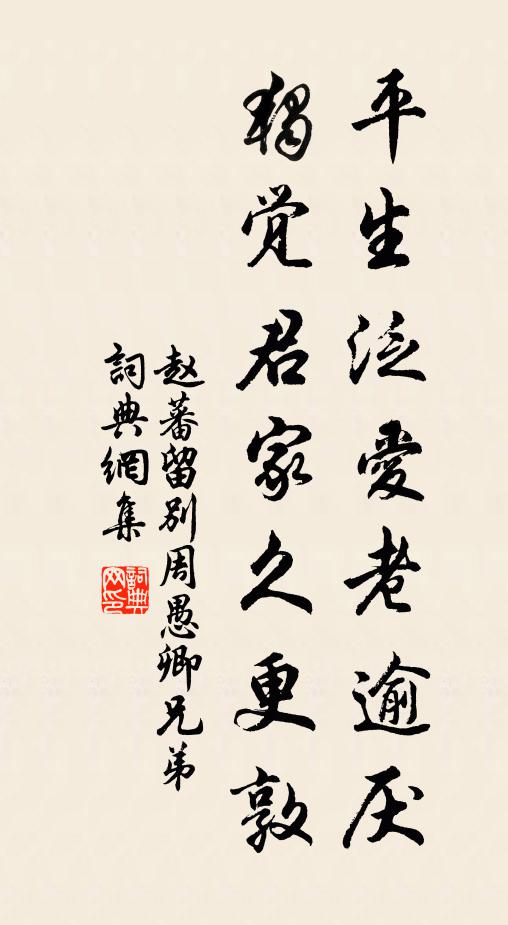 平生泛愛老逾厌
獨觉君家久更敦
赵蕃留别周愚卿兄弟
詞典網集
詞典网印